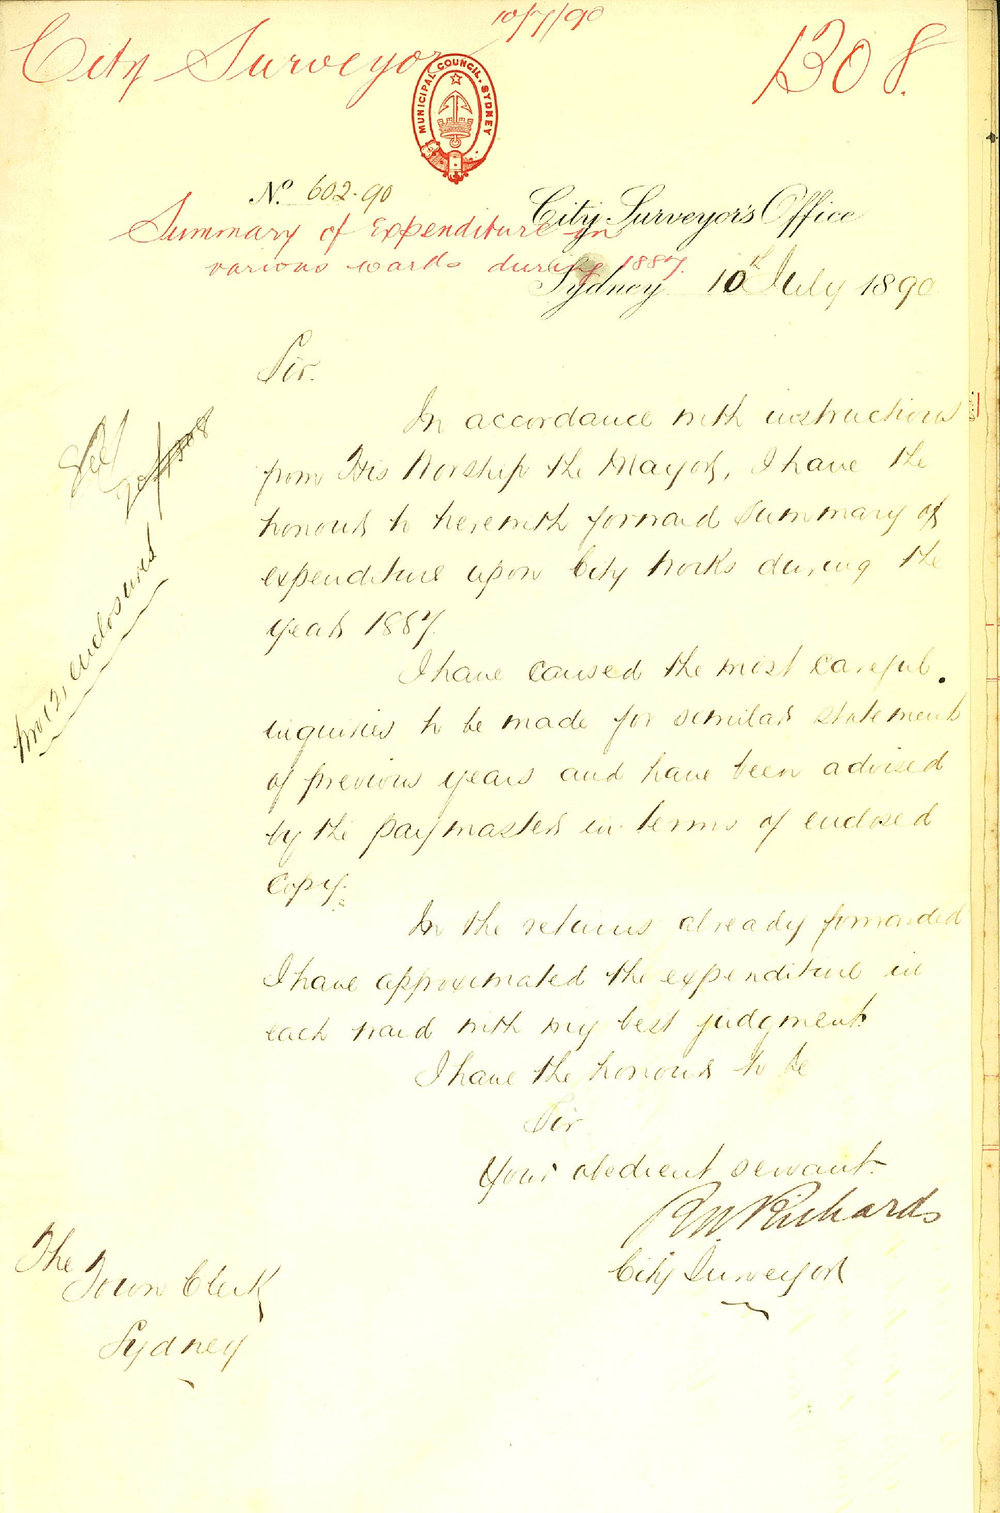 10/7/90
City Surveyor
1308.
MUNICIPAL COUNCIL. SYDNEY
No. 602-90
City Surveyor's Office
Summary of Expenditure in
various wards during 1887.
Sydney 10th July 1890
Sir.
In accordance with instructions
from His Worship the Mayor, I have the
honour to herewith forward summary of
expenditure upon City Works during the
year 1887.
I have caused the most careful
inquiries to be made for similar statement
of previous years and have been advised
by the paymaster in terms of enclosed
copy.
In the returns already forwarded
I have approximated the expenditure in
each ward with my best judgment.
I have the honour to be
Sir
Your obedient servant.
R W Richards
City Surveyor
The
Town Clerk
Sydney
Two (2) enclosures